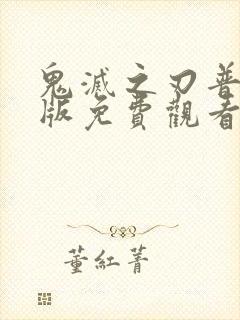 鬼滅之刃普
版免費觀看
董紅菁